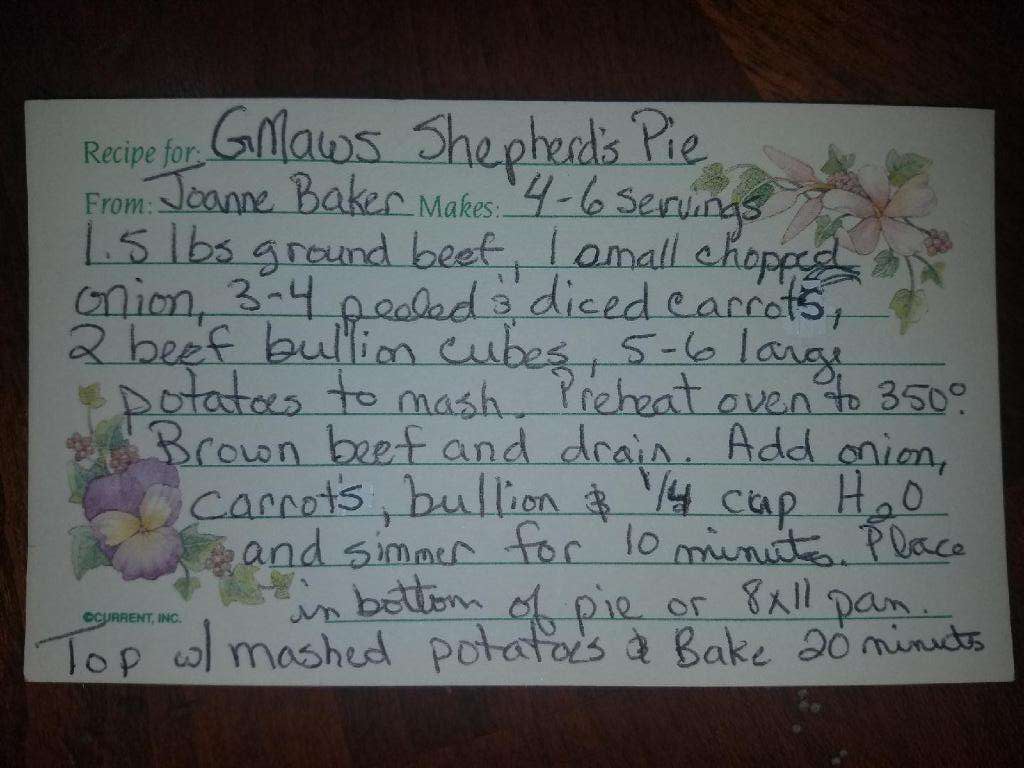 Recipe for: GMaws Shepherd's Pie
From: Joanne Baker Makes: 4-6 servings
1.5 lbs ground beef, 1 small chopped
onion, 3-4 peeled & diced carrots,
2 beef bullion cubes, 5-6 large
potatoes to mash. Preheat oven to 350°.
Brown beef and drain. Add onion,
carrots, bullion & 1/4 cup H2O
and simmer for 10 minutes. Place
in bottom of pie or 8x11 pan.
©CURRENT, INC.
Top w/ mashed potatoes & Bake 20 minuts